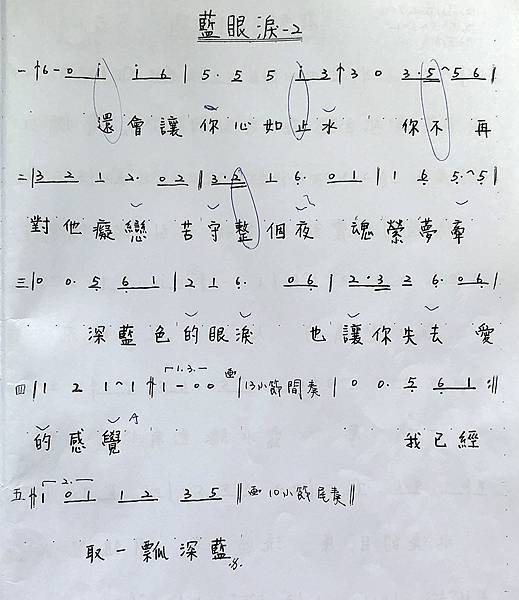 藍眼淚-2
一 ↑6-0 i i 6 | 5. 5 5 i 3 ↑3 0 3.5~5 6 |
還會讓你心如止水 你不再
二 | 3 2 1 2. 0 2 || 3.2 1 6. 0 1 | 1 6 5.~5 |
對他癡戀 苦守整個夜 魂縈夢牽
三 | 0 0. 5 6 1 | 2 1 6. 0 6 | 2.3 2 6. 0 6 |
深藍色的眼淚 也讓你失去 愛
四 | 1 2 1~1 || 1.3. 1-00 | 13小節間奏 | 0 0. 5 6 1 :||
的感覺 A 我已經
五 || 2. 1 0 1 1 2 3 5 || 10小節尾奏 ||
取一瓢深藍